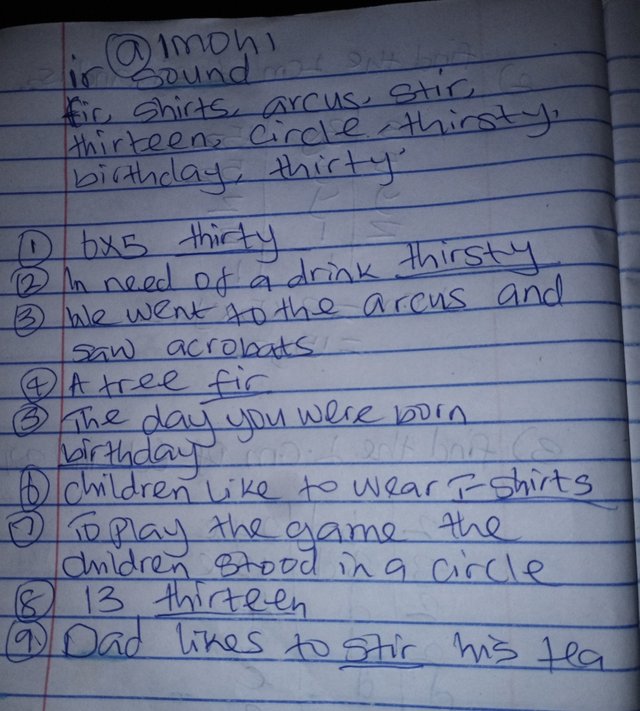 @1moh1
ir sound
fir, shirts, arcus, stir,
thirteen, circle, thirsty,
birthday, thirty
① 6x5 thirty
② In need of a drink thirsty
③ We went to the arcus and
saw acrobats
④ A tree fir
⑤ The day you were born
birthday
⑥ children like to wear T-shirts
⑦ To play the game the
children stood in a circle
⑧ 13 thirteen
⑨ Dad likes to stir his tea